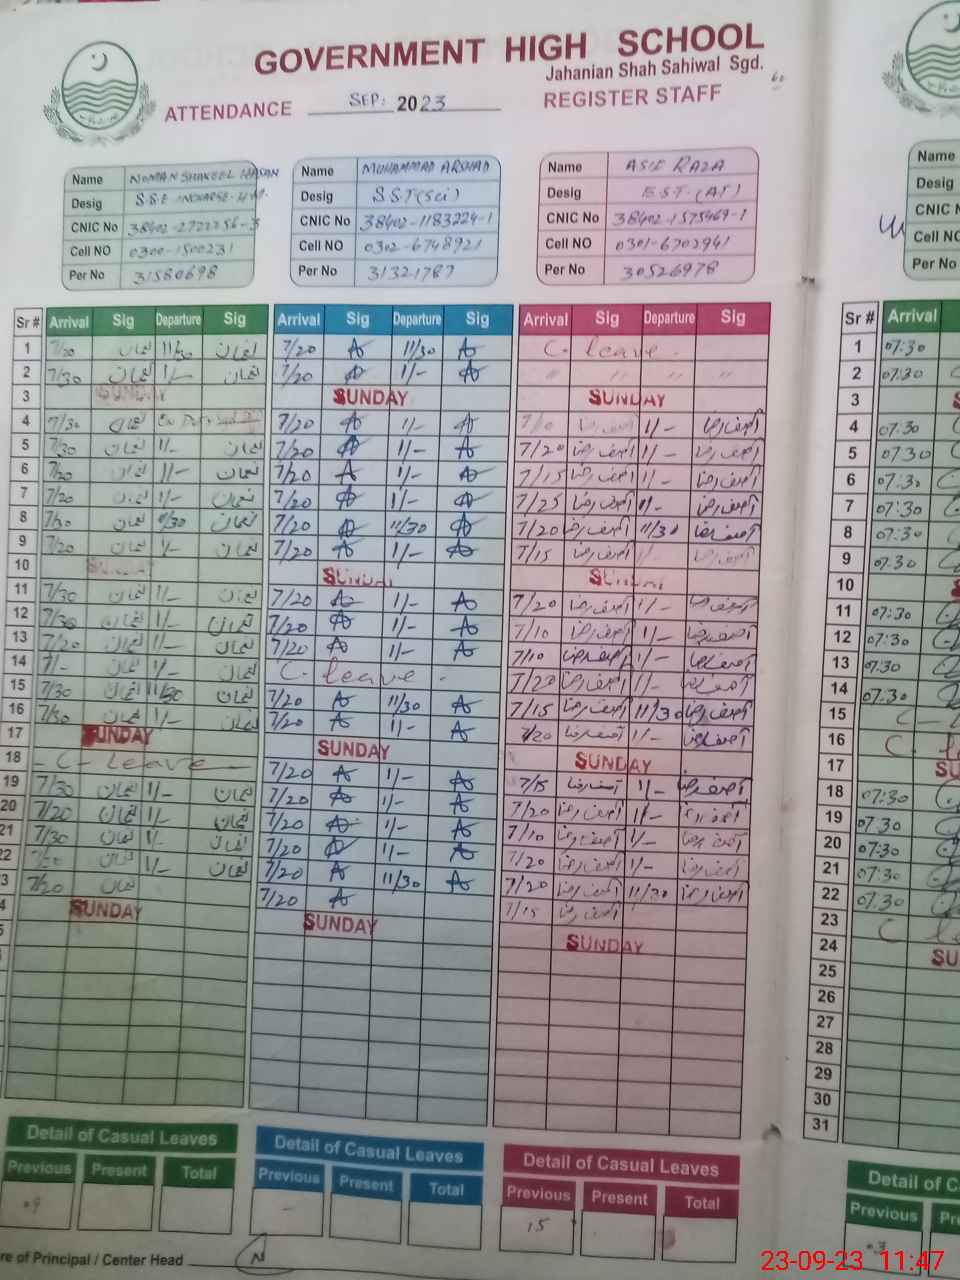 GOVERNMENT HIGH SCHOOL
Jahanian Shah Sahiwal Sgd.
ATTENDANCE SEP: 2023 REGISTER STAFF
Name NOMAN SHAKEEL HASAN
Desig S.S.E
CNIC No 38402-2722256-3
Cell NO 0300-1500231
Per No 31580698
Name MUHAMMAD ARSHAD
Desig S.S.T(Sci)
CNIC No 38402-1183224-1
Cell NO 0302-6748921
Per No 31321787
Name ASIF RAZA
Desig E.S.T.(AT)
CNIC No 38402-1575469-1
Cell NO 0301-6702941
Per No 30526978
Name
Desig
CNIC
Cell NO
Per No
Sr # Arrival Sig Departure Sig Arrival Sig Departure Sig Arrival Sig Departure Sig Sr # Arrival
1 7/20 نعمان 11/30 نعمان 7/20 A 11/30 A C. leave 1 07:30
2 7/30 نعمان 1/- نعمان 7/20 A 1/- A " " " " 2 07:30
3 SUNDAY SUNDAY SUNDAY 3
4 7/30 نعمان 7/20 A 1/- A 7/10 آصف رضا 1/- آصف رضا 4 07:30
5 7/30 نعمان 1/- نعمان 7/20 A 1/- A 7/20 آصف رضا 1/- آصف رضا 5 07:30
6 7/20 نعمان 1/- نعمان 7/20 A 1/- A 7/15 آصف رضا 1/- آصف رضا 6 07:30
7 7/20 نعمان 1/- نعمان 7/20 A 1/- A 7/25 آصف رضا 1/- آصف رضا 7 07:30
8 7/30 نعمان 11/30 نعمان 7/20 A 11/30 A 7/20 آصف رضا 11/30 آصف رضا 8 07:30
9 7/20 نعمان 1/- نعمان 7/20 A 1/- A 7/15 آصف رضا 1/- آصف رضا 9 07:30
10 SUNDAY SUNDAY SUNDAY 10
11 7/30 نعمان 1/- نعمان 7/20 A 1/- A 7/20 آصف رضا 1/- آصف رضا 11 07:30
12 7/30 نعمان 1/- نعمان 7/20 A 1/- A 7/10 آصف رضا 1/- آصف رضا 12 07:30
13 7/20 نعمان 1/- نعمان 7/20 A 1/- A 7/10 آصف رضا 1/- آصف رضا 13 07:30
14 7/- نعمان 1/- نعمان C. leave 7/20 آصف رضا 1/- آصف رضا 14 07:30
15 7/30 نعمان 11/30 نعمان 7/20 A 11/30 A 7/15 آصف رضا 11/30 آصف رضا 15 C-
16 7/30 نعمان 1/- نعمان 7/20 A 1/- A 7/20 آصف رضا 1/- آصف رضا 16 C.
17 SUNDAY SUNDAY SUNDAY 17 SU
18 C- Leave 7/20 A 1/- A 7/15 آصف رضا 1/- آصف رضا 18 07:30
19 7/30 نعمان 1/- نعمان 7/20 A 1/- A 7/20 آصف رضا 1/- آصف رضا 19 07:30
20 7/20 نعمان 1/- نعمان 7/20 A 1/- A 7/10 آصف رضا 1/- آصف رضا 20 07:30
21 7/30 نعمان 1/- نعمان 7/20 A 1/- A 7/20 آصف رضا 1/- آصف رضا 21 07:30
22 نعمان 1/- نعمان 7/20 A 11/30 A 7/20 آصف رضا 11/30 آصف رضا 22 07:30
3 7/20 نعمان 7/20 A 7/15 آصف رضا 23 C
4 SUNDAY SUNDAY SUNDAY 24 SU
5 25
26
27
28
29
30
31
Detail of Casual Leaves Detail of Casual Leaves Detail of Casual Leaves Detail of C
Previous Present Total Previous Present Total Previous Present Total Previous Pre
09 - 15 03
re of Principal / Center Head
23-09-23 11:47